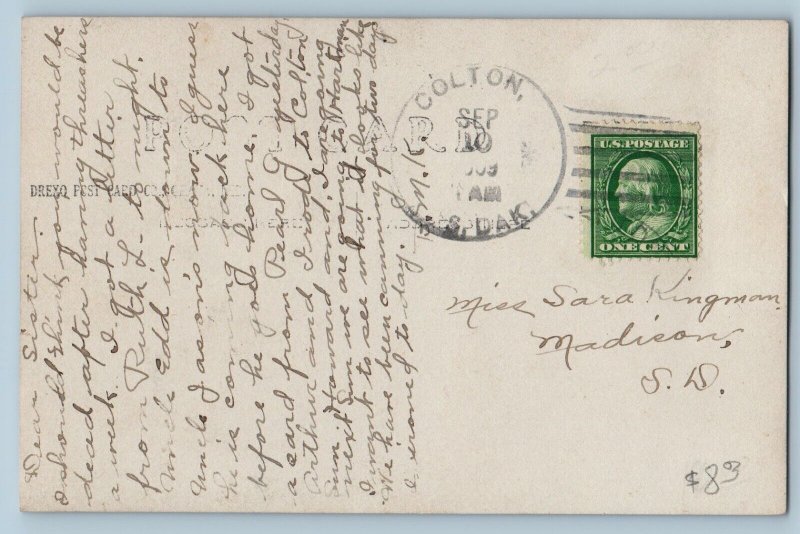 Dear Sister.
I should think you would be
dead after having threshers
a week. I got a letter
from Ruth L. to night.
Uncle Edd is down to
Uncle Jason's now. I guess
he is coming back here
before he goes home. I got
a card from Pearl G. yesterday.
Arthur and I rode to Colton
Sun. Howard and I are going
next Sun. we are going to Hartman
I want to see what it looks like
We have been canning for two days
I ironed to day. M. K.
POST CARD
COLTON,
SEP
10
1909
1 AM
S. DAK.
U.S. POSTAGE
ONE CENT
Miss Sara Kingman
Madison,
S. D.
$8.00